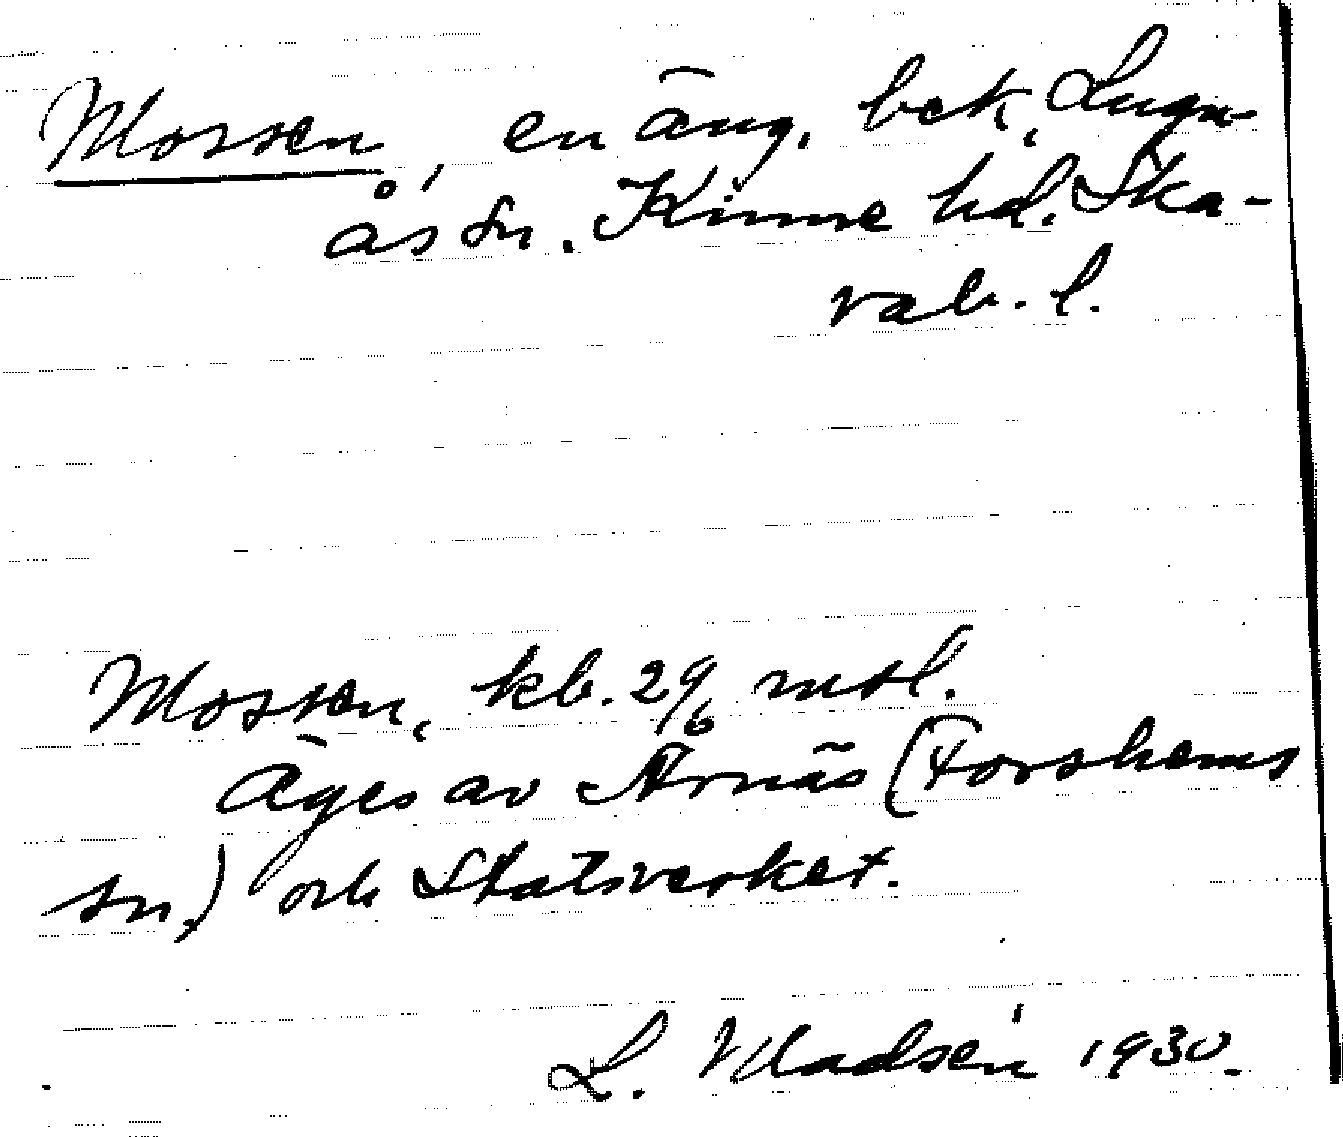 Mossen, en äng, bek. Lugn-
ås sn. Kinne hd. Ska-
rab. l.
Mossen, kb. 29/6 mtl.
Äges av Årnäs (Forshems
sn.) och Statsverket.
L. Madsén 1930.